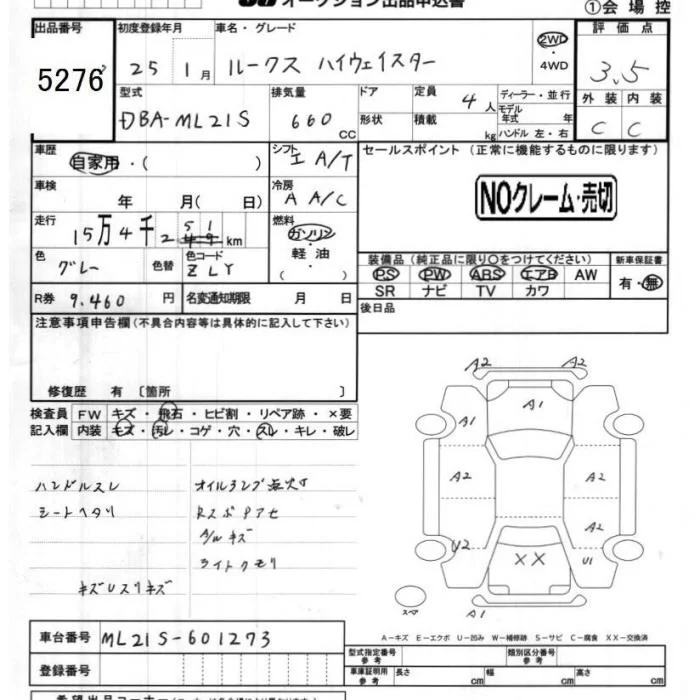 オークション出品申込書
①会場控
出品番号 初度登録年月 車名・グレード 評価点
5276 25 1月 ルークス ハイウェイスター 2WD・4WD 3.5
型式 排気量 ドア 定員 4人 ディーラー・並行 外装 内装
DBA-ML21S 660 CC 形状 積載 kg モデル年式 年 ハンドル 左・右 C C
車歴 シフト セールスポイント (正常に機能するものに限ります)
自家用・( ) I A/T
車検 年 月( 日) 冷房 A A/C NOクレーム・売切
走行 15万4千2 51 km 燃料 ガソリン・軽油・( )
色 グレー 色替 色コード ZLY
装備品 (純正品に限り○をつけてください) 新車保証書
PS PW ABS エアB AW 有・無
SR ナビ TV カワ
R券 9,460 円 名変通知期限 月 日 後日品
注意事項申告欄(不具合内容等は具体的に記入して下さい)
修復歴 有〔箇所 〕
検査員 FW キズ・飛石・ヒビ割・リペア跡・×要
記入欄 内装 キズ・汚レ・コゲ・穴・スレ・キレ・破レ
ハンドルスレ オイルランプ点灯
シートヘタリ RスポPアセ
A/Wキズ
ライトクモリ
キズUスリキズ
A2 A2
A1
A1
A2 A2
A2
U2 XX U1
スペア A1
A−キズ E−エクボ U−凹み W−補修跡 S−サビ C−腐食 XX−交換済
車台番号 ML21S-601273
型式指定番号 参考 類別区分番号 参考
登録番号 車庫証明用 参考 長さ cm 幅 cm 高さ cm